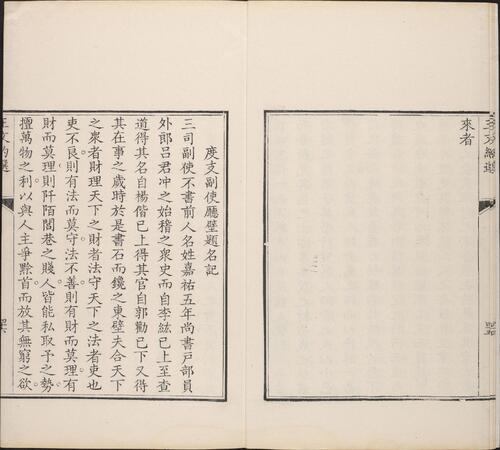 來者
度支副使廳壁題名記
三司副使不書前人名姓嘉祐五年尚書戶部員
外郎呂君冲之始稽之衆史而自李絃已上至查
道得其名自楊偕已上得其官自郭勸已下又得
其在事之歲時於是書石而鑱之東壁夫合天下
之衆者財理天下之財者法守天下之法者吏也
吏不良則有法而莫守法不善則有財而莫理有
財而莫理則阡陌閭巷之賤人皆能私取予之勢
擅萬物之利以與人主爭黔首而放其無窮之欲